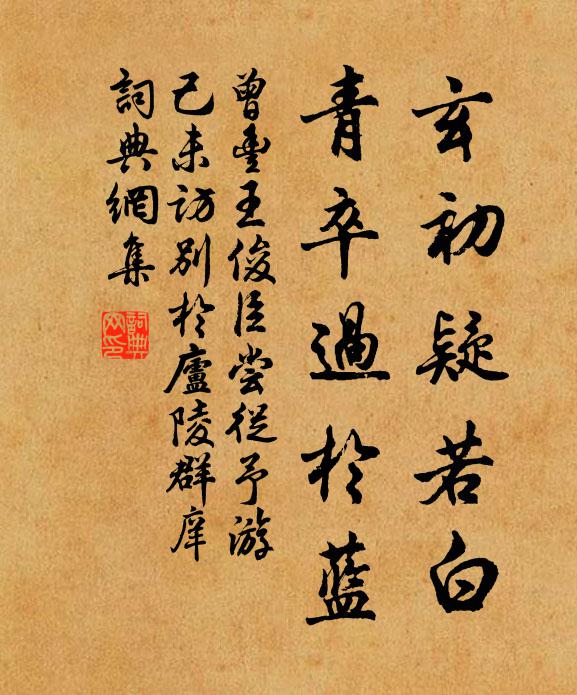 玄初疑若白
青卒過於藍
曾豐王俊臣嘗從予游
已未訪別於廬陵群庠
詞典網集
詞典網印